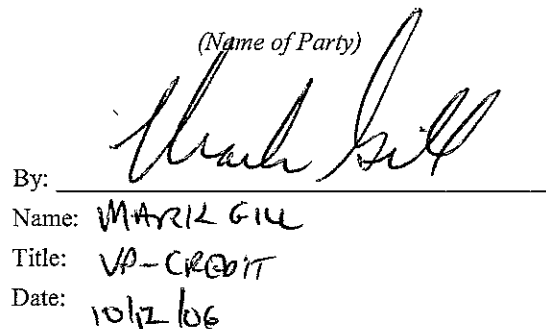 (Name of Party)
By: Mark Gill
Name: MARK GILL
Title: VP-CREDIT
Date: 10/12/06